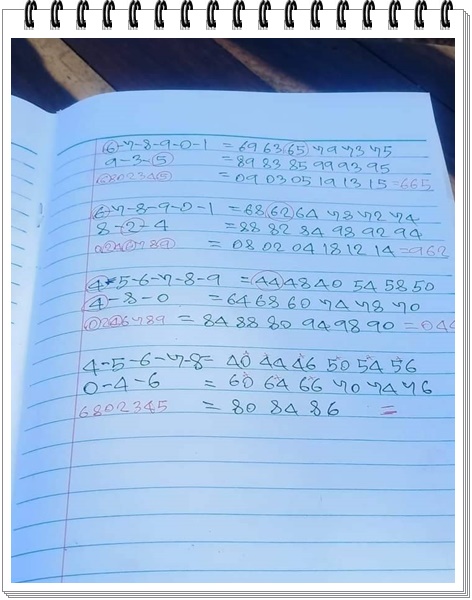 6-7-8-9-0-1 = 69 63 65 79 73 75
9-3-5 = 89 83 85 99 93 95
6802345 = 09 03 05 19 13 15 =665
6-7-8-9-0-1 = 68 62 64 78 72 74
8-2-4 = 88 82 84 98 92 94
0246789 = 08 02 04 18 12 14 =962
4-5-6-7-8-9 = 44 48 40 54 58 50
4-8-0 = 64 68 60 74 78 70
0246789 = 84 88 80 94 98 90 =044
4-5-6-7-8= 40 44 46 50 54 56
0-4-6 = 60 64 66 70 74 76
6802345 = 80 84 86 =